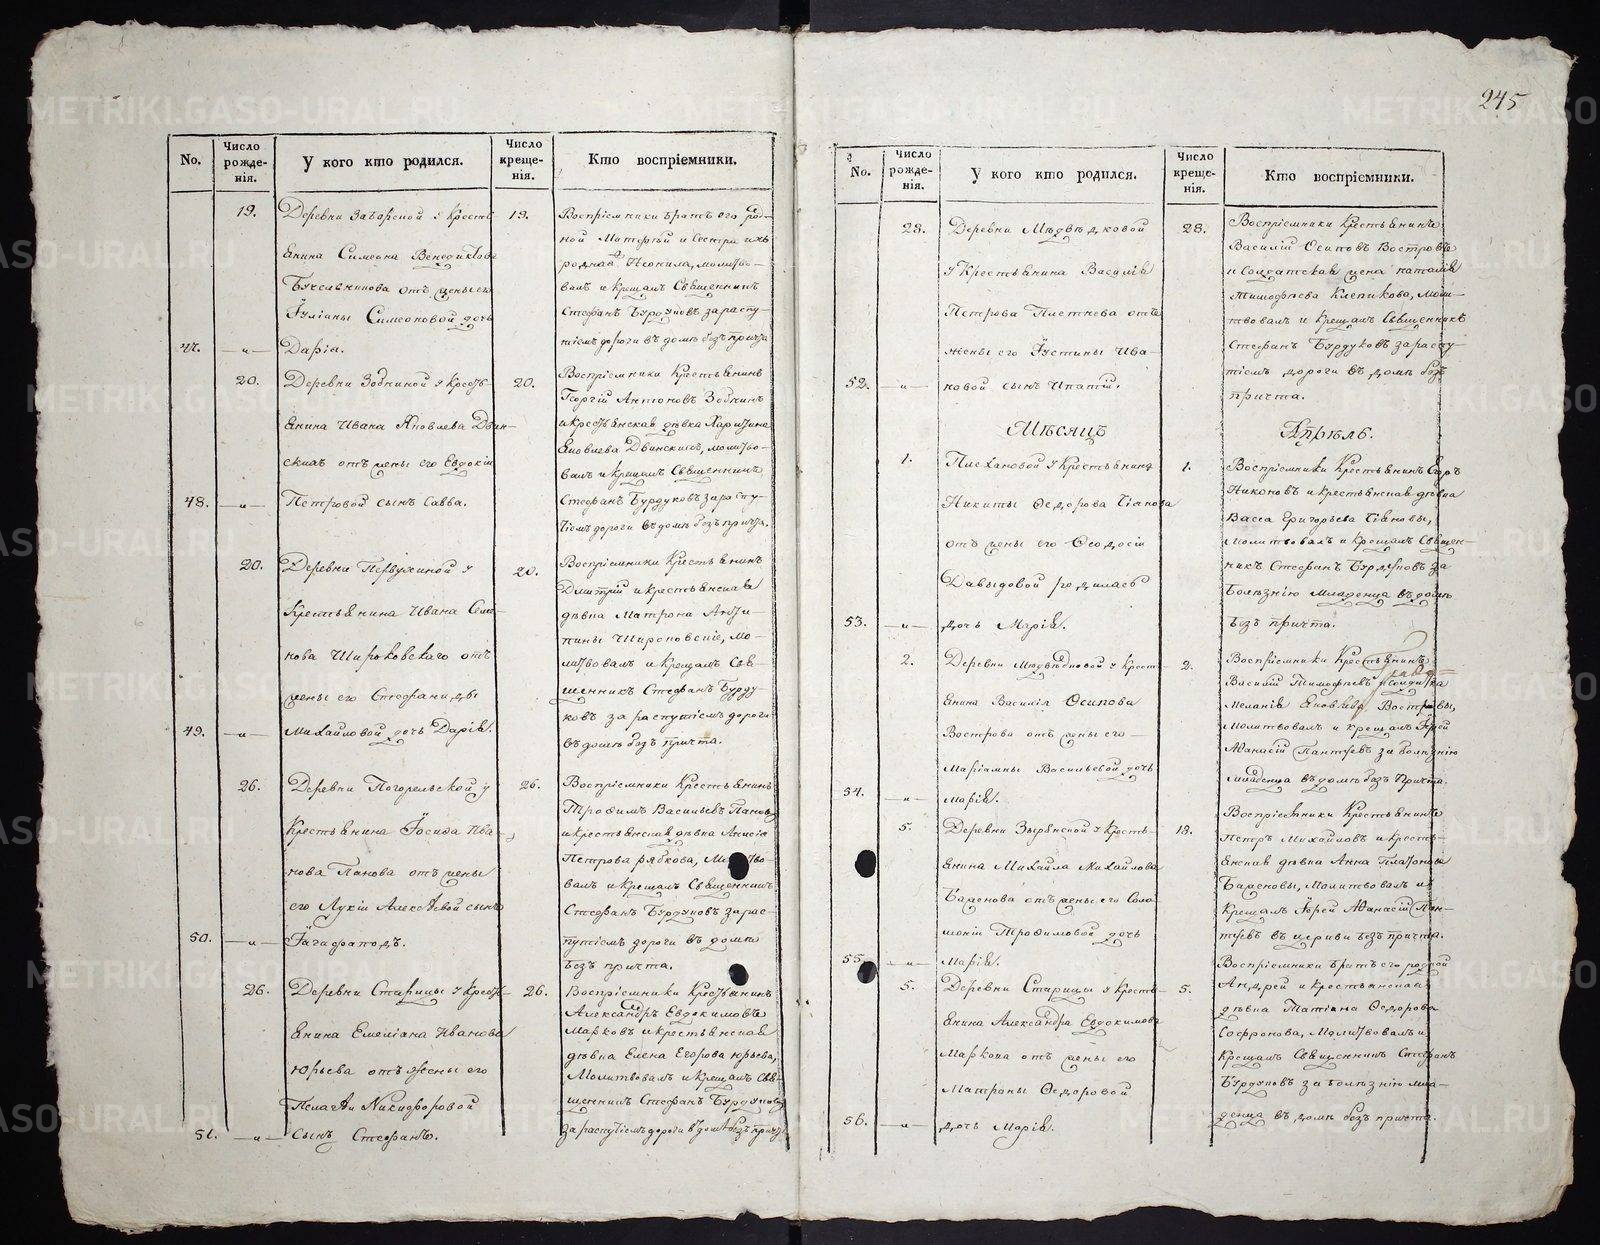 245
No.
Число рожде-нія.
У кого кто родился.
Число креще-нія.
Кто воспріемники.
19.
Деревни Заборской у кресть
янина Симеона Венедиктова
отъ жены его
Іуліаны Симеоновой дочь
47. —"— Дарія.
19.
Воспріемники братъ его род-
ной и сестра ихъ
родная Неонила, молитво-
валъ и крещалъ Священникъ
Стефанъ Бурдуковъ за распу-
тіемъ дороги въ домѣ безъ причта
20.
Деревни Зобниной у кресть-
янина Ивана Яковлева Двин-
скихъ отъ жены его Евдокіи
48. —"— Петровой сынъ Савва.
20.
Воспріемники крестьянинъ
Георгій Антоновъ Зобнинъ
и крестьянская дѣвка Харитина
Яковлева Двинскихъ, молитво-
валъ и крещалъ Священникъ
Стефанъ Бурдуковъ за распу-
тіемъ дороги въ домѣ безъ причта.
20.
Деревни у
крестьянина Ивана Семе-
нова Широковскаго отъ
жены его Стефаниды
49. —"— Михайловой дочь Дарія.
20.
Воспріемники крестьянинъ
Дмитрій и крестьянская
дѣвка Матрона Анти-
пины Широковскіе, мо-
литвовалъ и крещалъ Свя-
щенникъ Стефанъ Бурду-
ковъ за распутіемъ дороги
въ домѣ безъ причта.
26.
Деревни Погорельской у
крестьянина Іосифа Ива-
нова Панова отъ жены
его Лукіи Алексѣевой сынъ
50. —"— Іагафаподъ.
26.
Воспріемники крестьянинъ
Трофимъ Васильевъ Пановъ
и крестьянская дѣвка Анисія
Петрова Рябкова, молитво-
валъ и крещалъ Священникъ
Стефанъ Бурдуковъ за рас-
путіемъ дороги въ домѣ
безъ причта.
26.
Деревни Старицы у кресть-
янина Емеліана Иванова
Юрьева отъ жены его
Пелагіи Никифоровой
51. —"— сынъ Стефанъ.
26.
Воспріемники крестьянинъ
Александръ Евдокимовъ
Марковъ и крестьянская
дѣвка Елена Егорова Юрьева,
молитвовалъ и крещалъ Свя-
щенникъ Стефанъ Бурдуковъ
за распутіемъ дороги въ домѣ безъ причта
No.
Число рожде-нія.
У кого кто родился.
Число креще-нія.
Кто воспріемники.
28.
Деревни Медвѣдковой
у крестьянина Василія
Петрова Плетнева отъ
жены его Іустины Ива-
52. —"— новой сынъ Ипатій.
28.
Воспріемники крестьянинъ
Василій Осиповъ Востровъ
и солдатская жена Наталія
Тимофѣева Клепикова, моли-
твовалъ и крещалъ Священникъ
Стефанъ Бурдуковъ за распу-
тіемъ дороги въ домѣ безъ
причта.
Мѣсяцъ Апрѣль.
1.
Плехановой у крестьянина
Никиты Ѳедорова
отъ жены его Ѳеодосіи
Давыдовой родилась
53. —"— дочь Марія.
1.
Воспріемники крестьянинъ Егоръ
Никоновъ и крестьянская дѣвка
Васса Григорьева
молитвовалъ и крещалъ Священ-
никъ Стефанъ Бурдуковъ за
болѣзнію младенца въ домѣ
безъ причта.
2.
Деревни Медвѣдковой у крест-
янина Василія Осипова
Вострова отъ жены его
Маріамны Васильевой дочь
54. —"— Марія.
2.
Воспріемники крестьянинъ
Василій Тимофѣевъ и солдатка
Меланія Яковлева Востровы,
молитвовалъ и крещалъ Іерей
Аѳанасій за болѣзнію
младенца въ домѣ безъ причта.
5.
Деревни Зырянской у кресть-
янина Михайла Михайлова
Баженова отъ жены его Соло-
моніи Трофимовой дочь
55. —"— Марія.
13.
Воспріемники крестьянинъ
Петръ Михайловъ и кресть-
янская дѣвка Анна Платонова
Баженовы, молитвовалъ и
крещалъ Іерей Аѳанасій
въ церкви безъ причта.
5.
Деревни Старицы у кресть-
янина Александра Евдокимова
Маркова отъ жены его
Матроны Ѳедоровой
56. —"— дочь Марія.
5.
Воспріемники братъ его родной
Андрей и крестьянская
дѣвка Татіана Ѳедорова
Софронова, молитвовалъ и
крещалъ Священникъ Стефанъ
Бурдуковъ за болѣзнію мла-
денца въ домѣ безъ причта.
METRIKI.GASO-URAL.RU